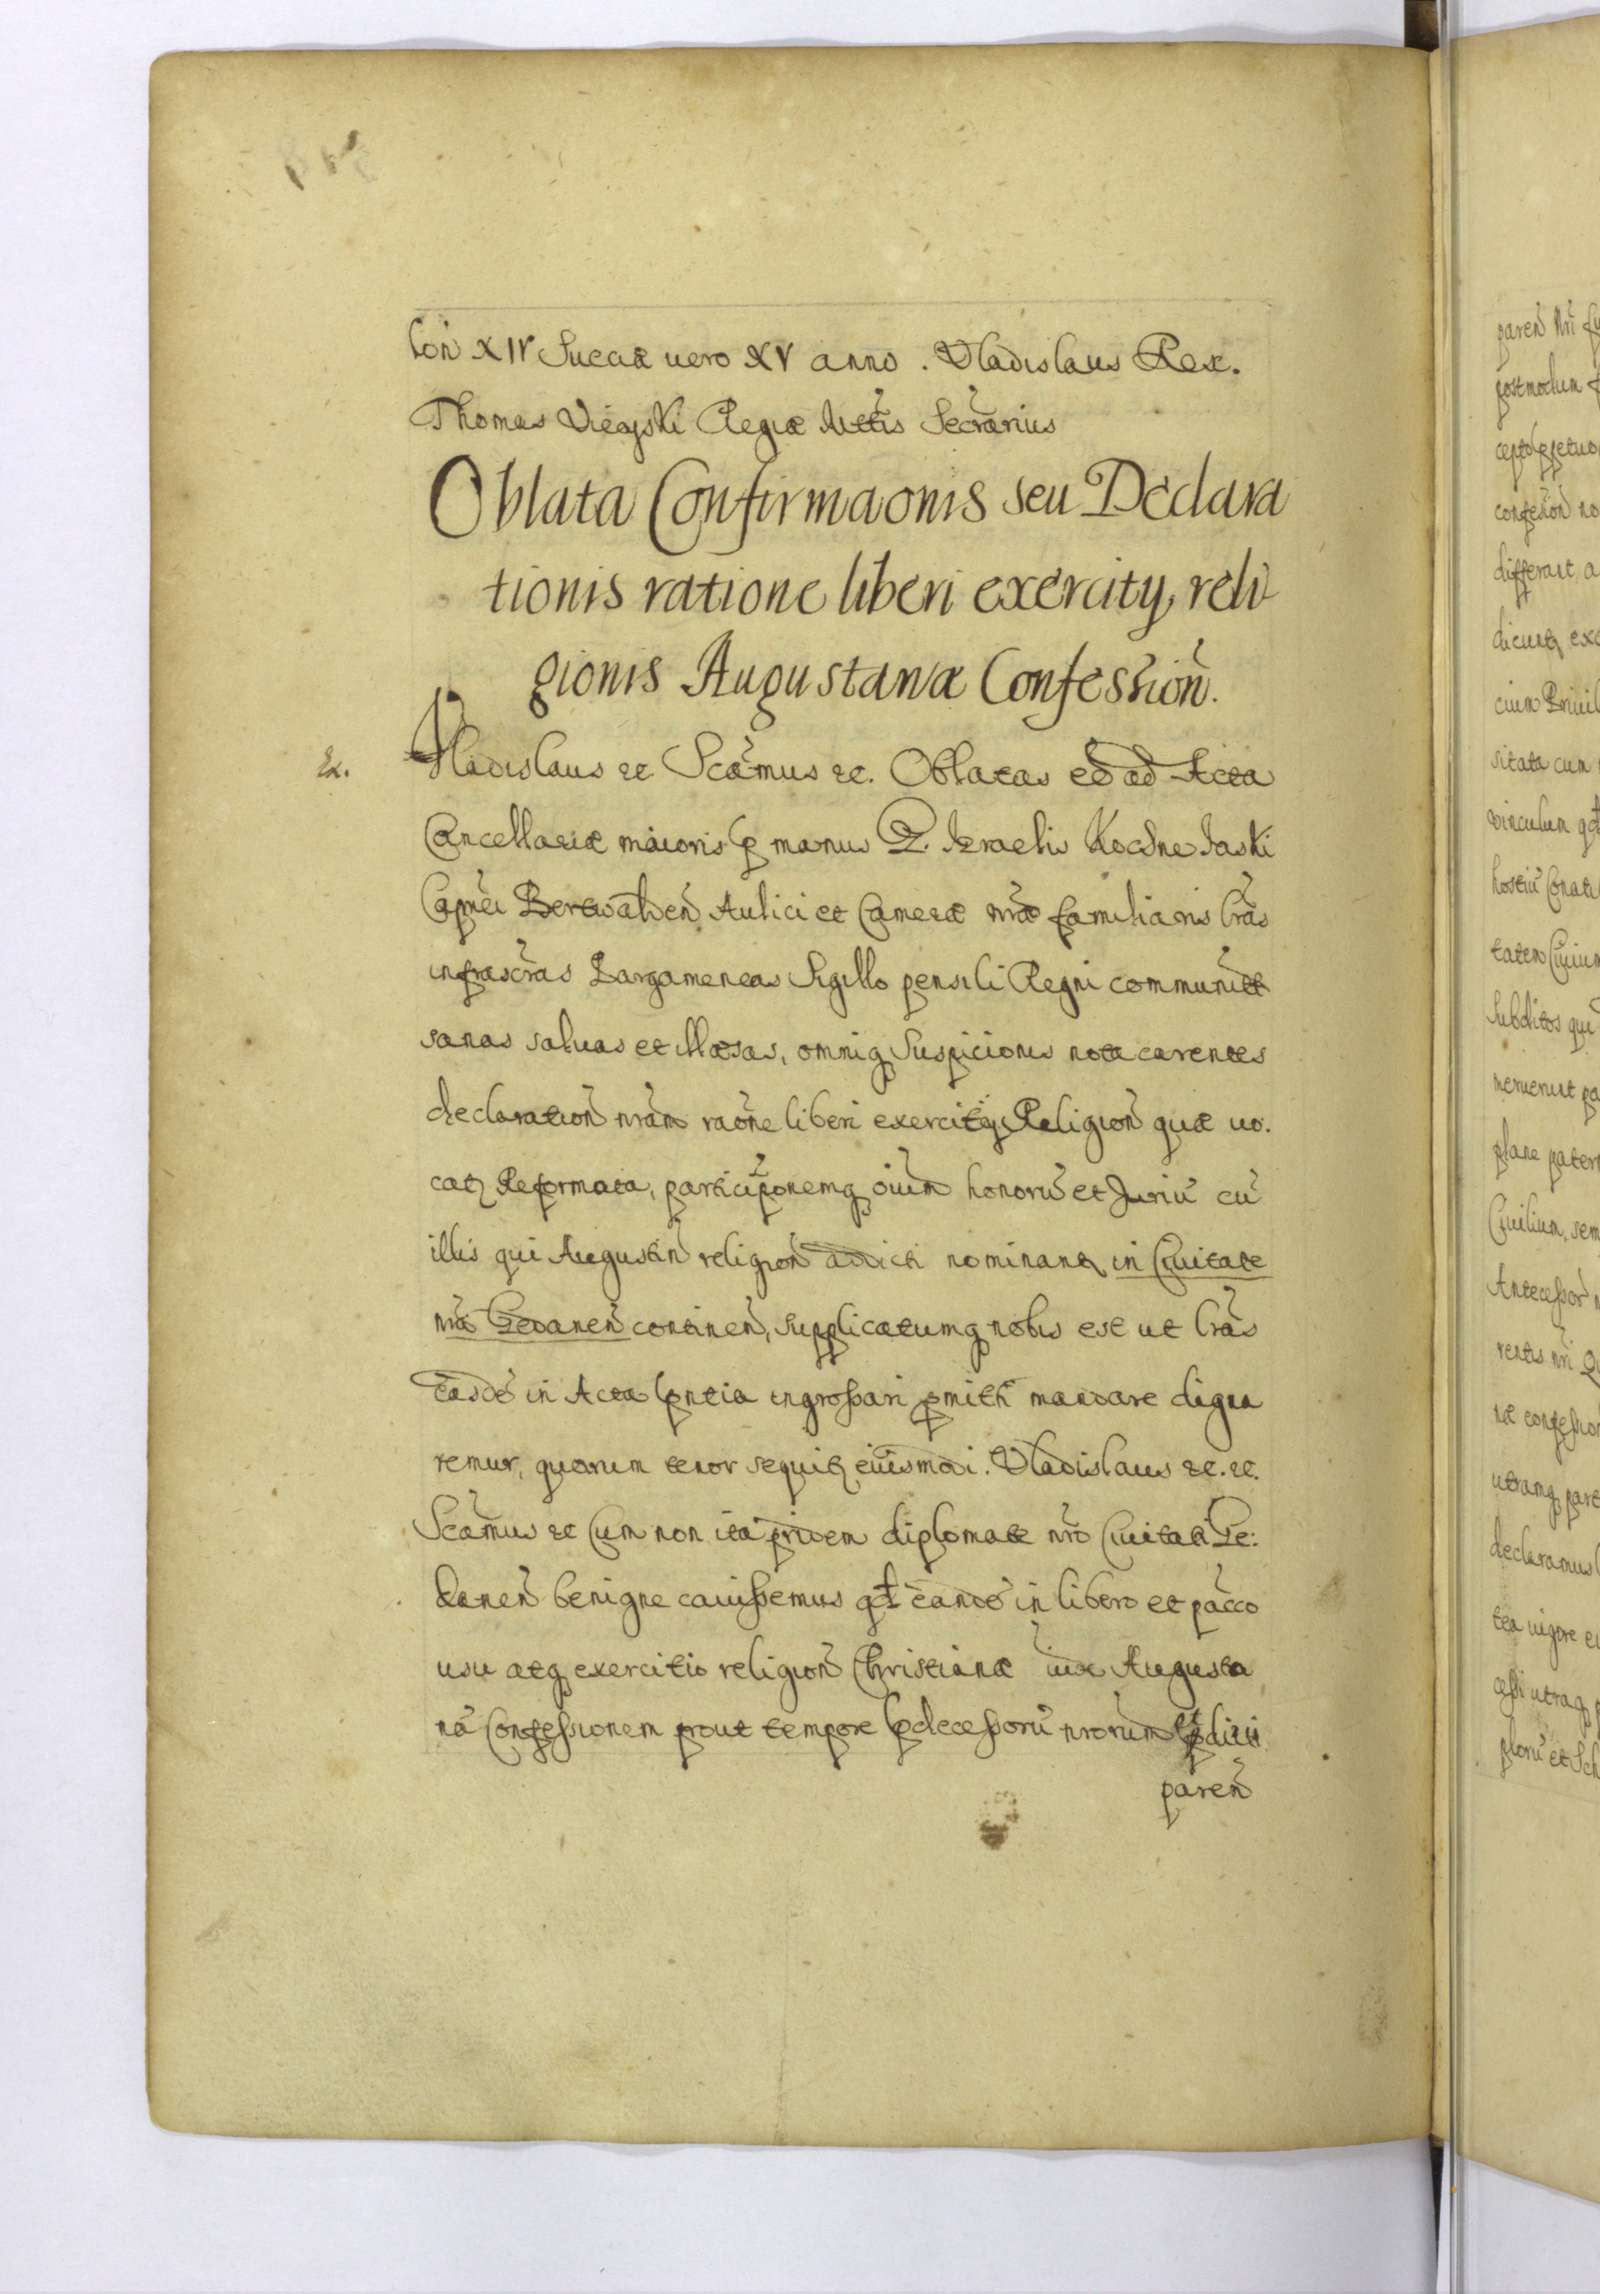 lon̄ XIV Sueciæ uero XV anno. Vladislaus Rex.
Thomas Vieyski Regiæ Mttis Secrarius
Oblata Confirmaonis seu Declara
tionis ratione liberi exercity reli
gionis Augustanæ Confession̄.
Ex.
Vladislaus etc Scamus etc. Oblatas eē ad Acta
Cancellariæ maioris p manus G. Izraelis
Capnei Berwalden̄ Aulici et Cameræ nræ familiaris lras
infrascras Pargameneas Sigillo pensili Regni communitt
sanas saluas et illæsas, omniq suspicionis nota carentes
declaration̄ nram raone liberi exercity Religion̄ quæ uo.
catz Reformata, participonemq oium honorū et Juriū cū
illis qui Augustan̄ religion̄ addicti nominantz in Ciuitate
nra Gedanen̄ continen̄, supplicatumq nobis est ut lras
easdē in Acta pntia ingrossari pmitti mandare digna
remur, quarum tenor sequitz eiusmodi. Vladislaus etc. etc.
Scamus etc Cum non ita pridem diplomate nro Ciuitati Ge:
danen̄ benigne cauissemus qd eandē in libero et pacco
usu atq exercitio religion̄ Christianæ iux Augusta
nā Confessionem prout tempore pdecessorū nrorum et diui
paren̄
paren̄ nri
postmodum
cepto ppetuo
confession̄ no
differant a
dicuntz exe
cium Priuil
sitata cum
vinculum qd
hostiū Conati
tatem Ciuium
Subditos qui
meruerut pa
plane patern
Ciuilium, sem
Antecessor n
rentis nri
næ confession
utramq part
declaramus
tea uigore ei
cessi utraq p
plorū et Sch